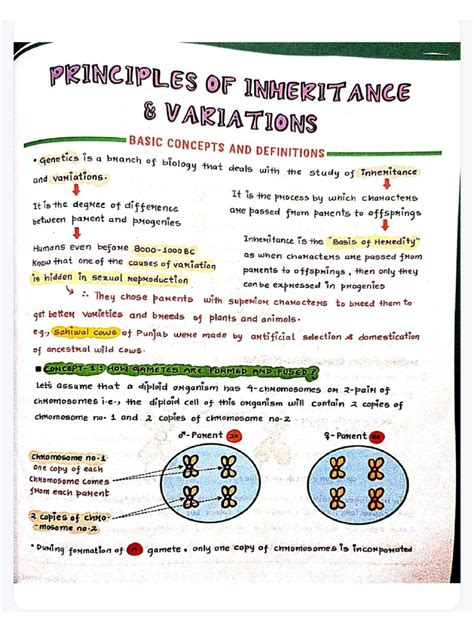 PRINCIPLES OF INHERITANCE
& VARIATIONS
BASIC CONCEPTS AND DEFINITIONS
• Genetics is a branch of biology that deals with the study of Inheritance
and variations.
It is the degree of difference
between parent and progenies
Humans even before 8000-1000 BC
Know that one of the causes of variation
is hidden in sexual reproduction
It is the process by which characters
are passed from parents to offsprings
Inheritance is the "Basis of Heredity"
as when characters are passed from
parents to offsprings, then only they
can be expressed in progenies
∴ They chose parents with superior characters to breed them to
get better varieties and breeds of plants and animals.
e.g., Sahiwal cows of Punjab were made by artificial selection & domestication
of ancestral wild cows.
■ CONCEPT-1: HOW GAMETES ARE FORMED AND FUSED?
Let's assume that a diploid organism has 4-chromosomes or 2-pair of
chromosomes i.e., the diploid cell of this organism will contain 2 copies of
chromosome no. 1 and 2 copies of chromosome no.2
♂-Parent 2n
♀-Parent 2n
Chromosome no.1
one copy of each
Chromosome comes
from each parent
2 copies of chro-
mosome no.2
• During formation of n gamete, only one copy of chromosomes is incorporated